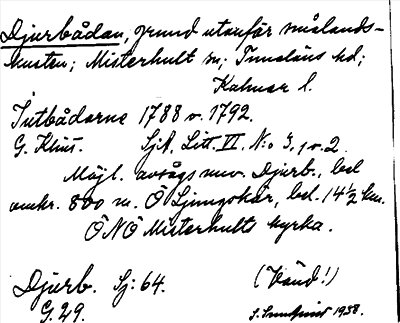 Djurbådan, grund utanför smålands-
kusten; Misterhult sn; Tunaläns hd;
Kalmar l.
Jutbådarne 1788 o. 1792.
G. Klint. SjA. Litt. VI. N:o 3, 1 o. 2.
Möjl. avsågs nuv. Djurb., bel
omkr. 800 m. Ö Ljungskär, bel. 14 1/2 km.
ÖNÖ Misterhults kyrka.
Djurb. Sj: 64. (Vänd!)
G. 29. 1938.